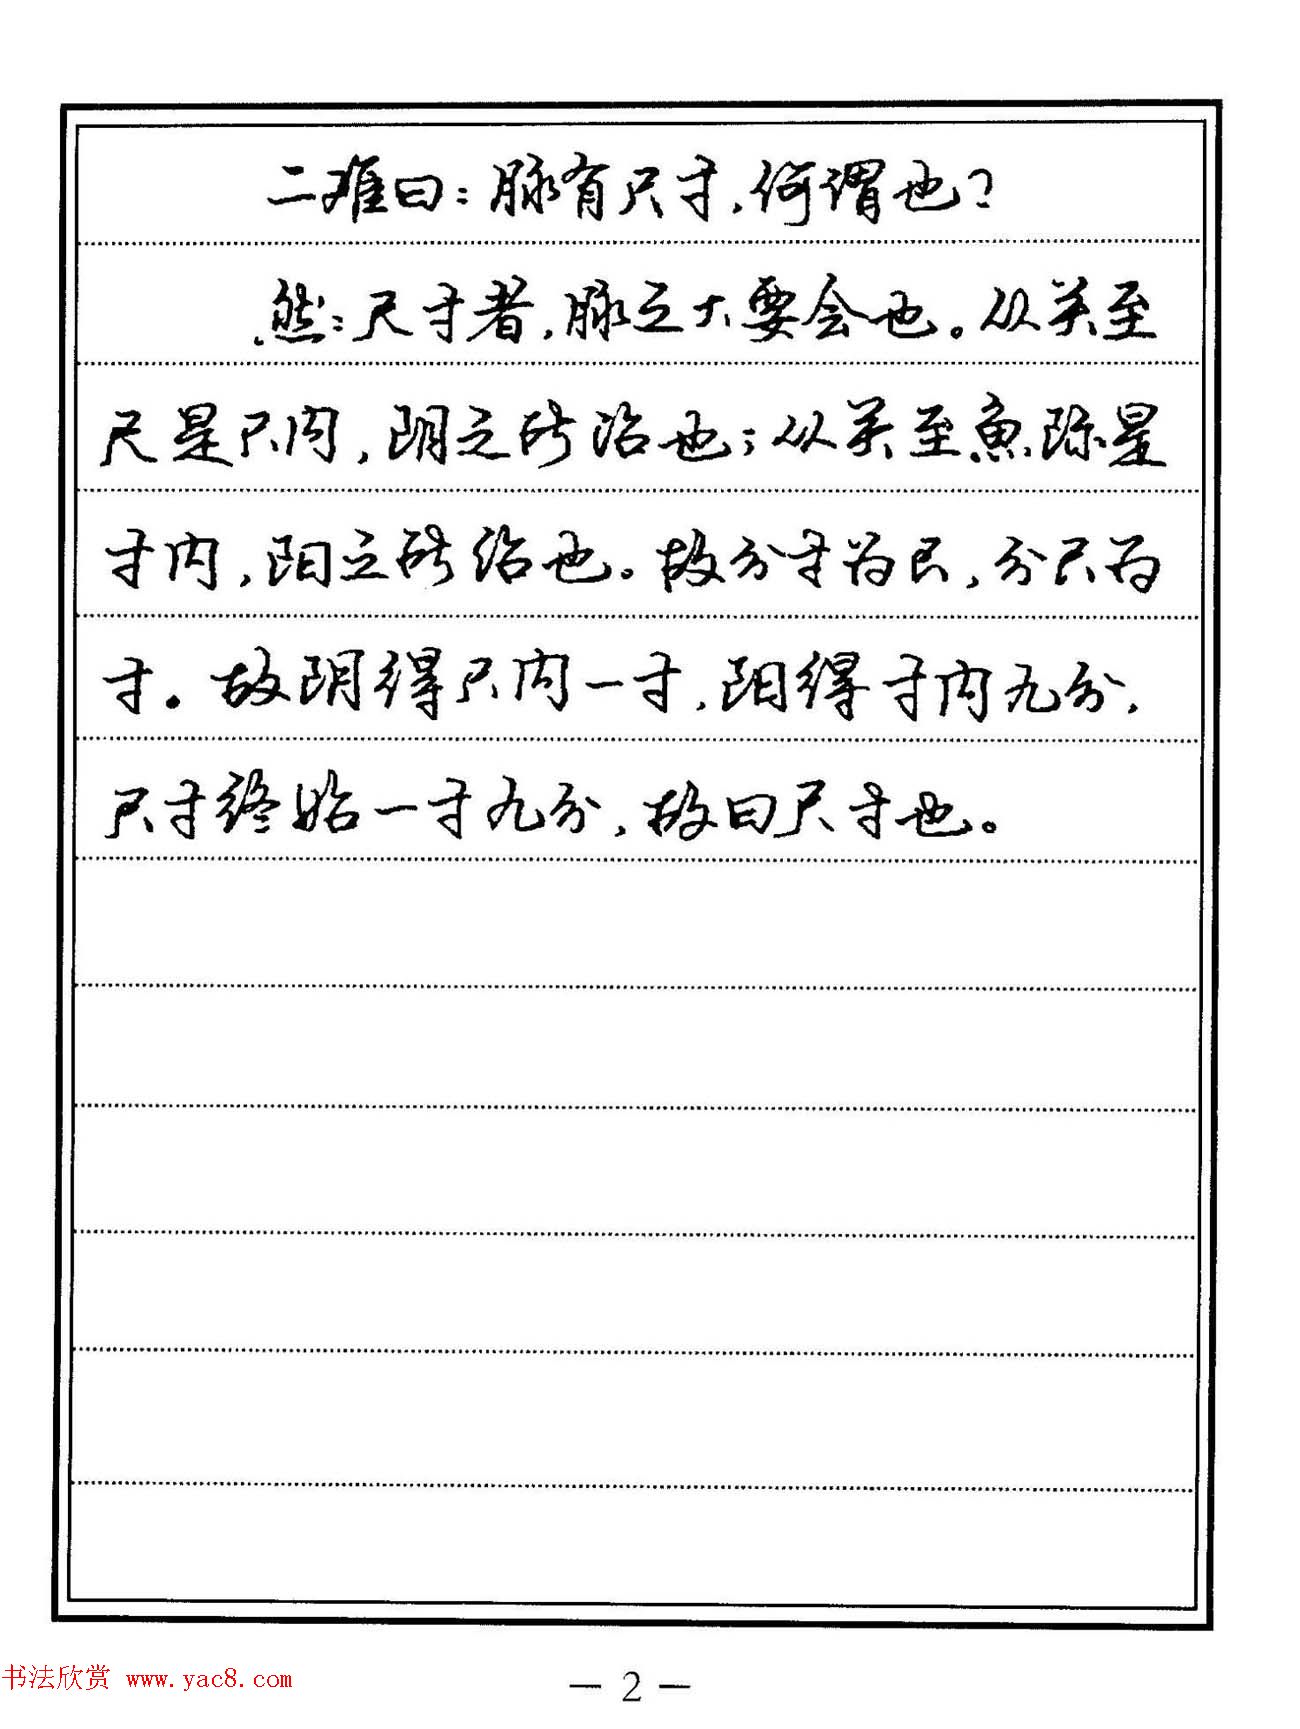 二难曰：脉有尺寸，何谓也？
然：尺寸者，脉之大要会也。从关至
尺是尺内，阴之所治也；从关至鱼际是
寸内，阳之所治也。故分寸为尺，分尺为
寸。故阴得尺内一寸，阳得寸内九分，
尺寸终始一寸九分，故曰尺寸也。
书法欣赏 www.yac8.com
— 2 —